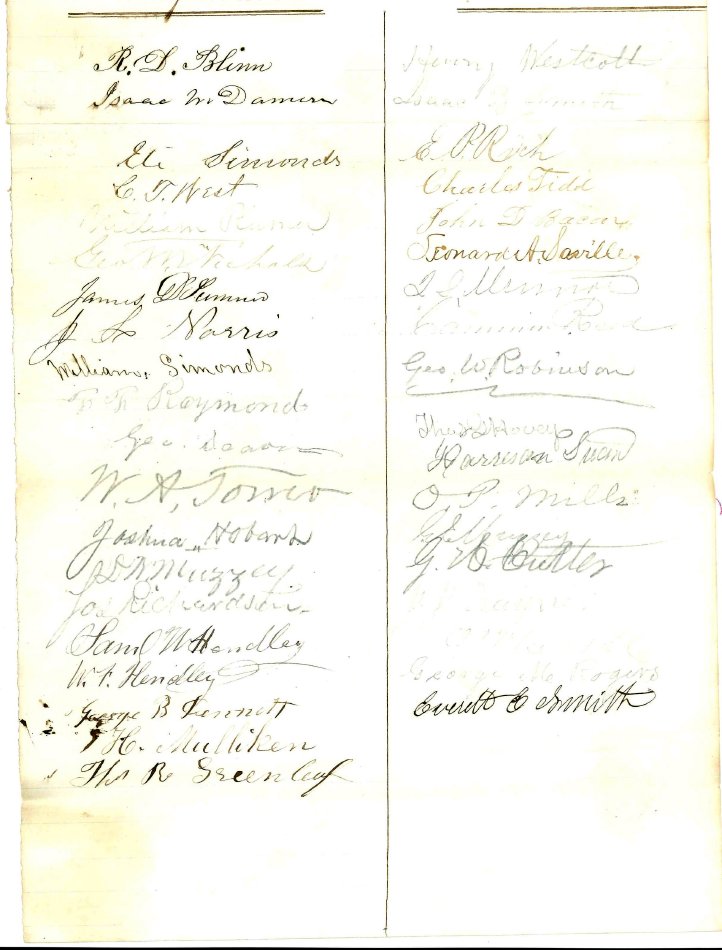 R. D. Blinn
Isaac N Damon
Eli Simonds
C. T. West
William
Geo
James D Sumner
Norris
William Simonds
Raymond
Geo.
W. A. Tower
Joshua Hobart
Muzzey
Jos Richardson
Saml W Hendley
W. F. Hendley
George B Bennett
H. Mulliken
Ths R Greenleaf
Henry Westcott
Isaac
E. P. Rich
Charles Tidd
John D Bacon
Leonard A. Saville.
Reed
Geo. W. Robinson
Hovey
Harrison Swan
O P. Mills
G. W. Cutter
George M Rogers
Everett E Smith